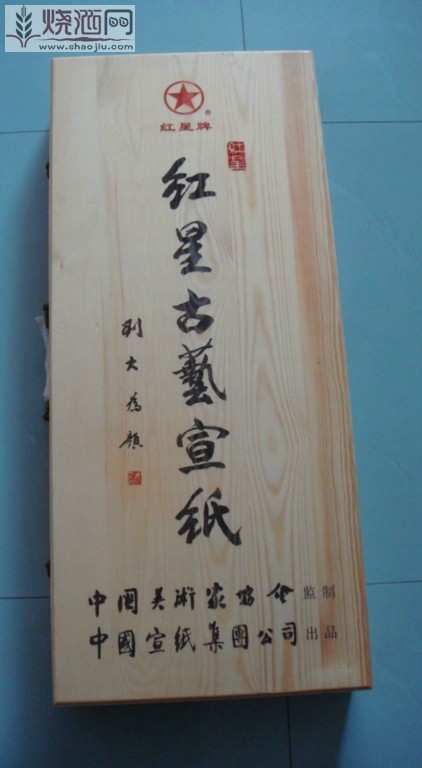 烧酒网
www.shaojiu.com
®
红星牌
红星
红星古藝宣纸
刘大为题
中国美術家协会监制
中國宣纸集團公司出品